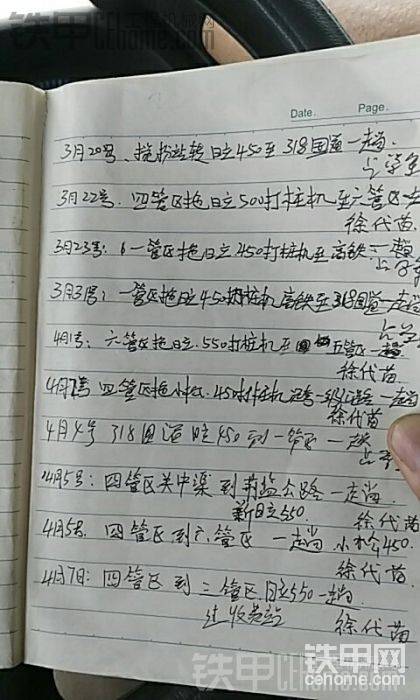 铁甲工程机械网
CEhome.com
Date. Page.
3月20号、拖 站转日立450至318国道一趟
3月22号. 四管区拖日立500打桩机至六管区一
徐代苗
3月23号: 一管区拖日立450打桩机至高铁一趟
3月31号: 一管区拖日立450 桩机高铁至318国道一趟
4月1号: 六管区拖日立.550打桩机至 五管区一趟
徐代苗
4月 号 四管区拖小松.450打桩机 一趟
徐代苗
4月4号 318国道日立450到一管区一趟
4月5号: 四管区关中渠到 监公路一走趟
新日立550 徐代苗
4月5号. 四管区到六管区 一趟 小松450.
徐代苗
4月7日: 四管区到三管区日立550一趟
过收费站 徐代苗
铁甲网
cehome.com
铁甲工程机械网